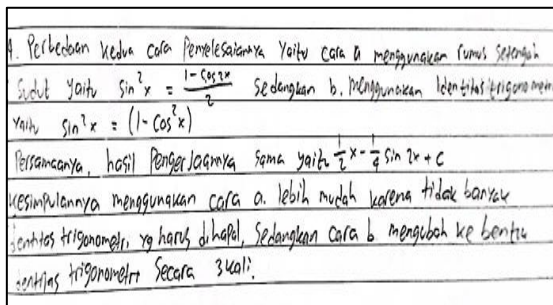 4. Perbedaan kedua cara Penyelesaiannya Yaitu cara a menggunakan rumus setengah
Sudut yaitu sin²x = (1-cos 2x)/2 Sedangkan b. menggunakan Identitas trigonometri
Yaitu sin²x = (1-cos²x)
Persamaanya, hasil Pengerjaannya sama yaitu 1/2 x - 1/4 sin 2x + c
Kesimpulannya menggunakan cara a. lebih mudah karena tidak banyak
dentitas trigonometri yg harus dihapal, Sedangkan cara b mengubah ke bentu
dentitas trigonometri Secara 3 kali.